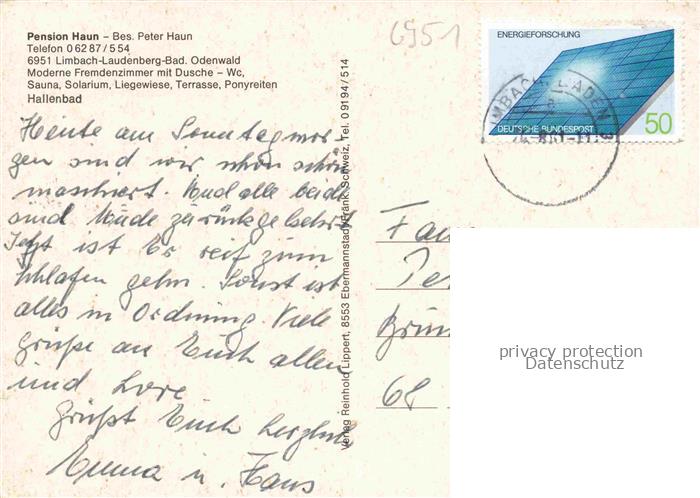 Pension Haun – Bes. Peter Haun
Telefon 0 62 87 / 5 54
6951 Limbach-Laudenberg-Bad. Odenwald
Moderne Fremdenzimmer mit Dusche – Wc,
Sauna, Solarium, Liegewiese, Terrasse, Ponyreiten
Hallenbad
6951
ENERGIEFORSCHUNG
DEUTSCHE BUNDESPOST
50
Heute am Sonntagmor-
gen sind wir schon schön
maschiert. Und alle beide
sind Müde zurückgekehrt
Jetzt ist Er reif zum
schlafen gehn. Sonst ist
alles in Ordnung. Viele
Grüße an Euch allen
und Lore
Grüßt Euch herzlich
Emma u. Hans
Verlag Reinhold Lippert, 8553 Ebermannstadt/Fränk. Schweiz, Tel. 0 91 94 / 5 14
Fa
68
privacy protection
Datenschutz